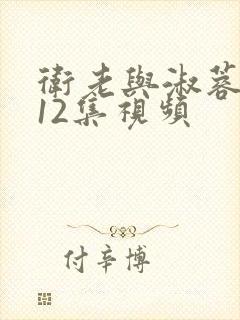 衛老與淑蓉
12集視頻
付辛博